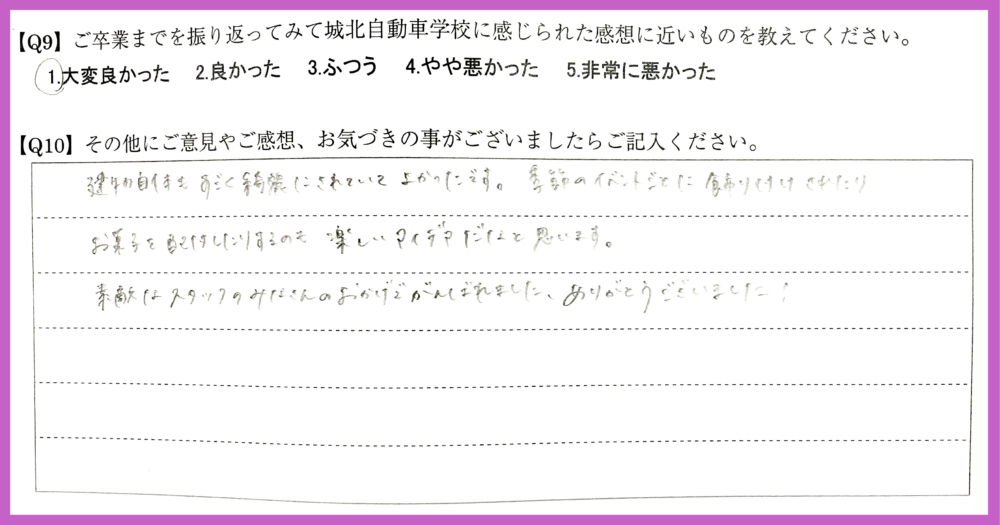 【Q9】ご卒業までを振り返ってみて城北自動車学校に感じられた感想に近いものを教えてください。
1.大変良かった 2.良かった 3.ふつう 4.やや悪かった 5.非常に悪かった
【Q10】その他にご意見やご感想、お気づきの事がございましたらご記入ください。
建物自体もすごく綺麗にされていてよかったです。季節のイベントごとに飾り付けされたり
お菓子を配付したりするのも楽しいアイデアだなと思います。
素敵なスタッフのみなさんのおかげでがんばれました、ありがとうございました!